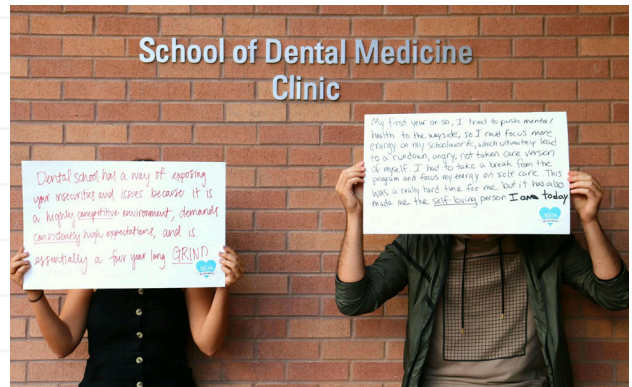 School of Dental Medicine
Clinic
Dental school has a way of exposing
your insecurities and issues because it is
a highly competitive environment, demands
consistently high expectations, and is
essentially a four year long GRIND
My first year or so, I tried to push mental
health to the wayside, so I could focus more
energy on my schoolwork, which ultimately lead
to a rundown, angry, not taken care version
of myself. I had to take a break from the
program and focus my energy on self care. This
was a really hard time for me but it has also
made me the self-loving person I am today